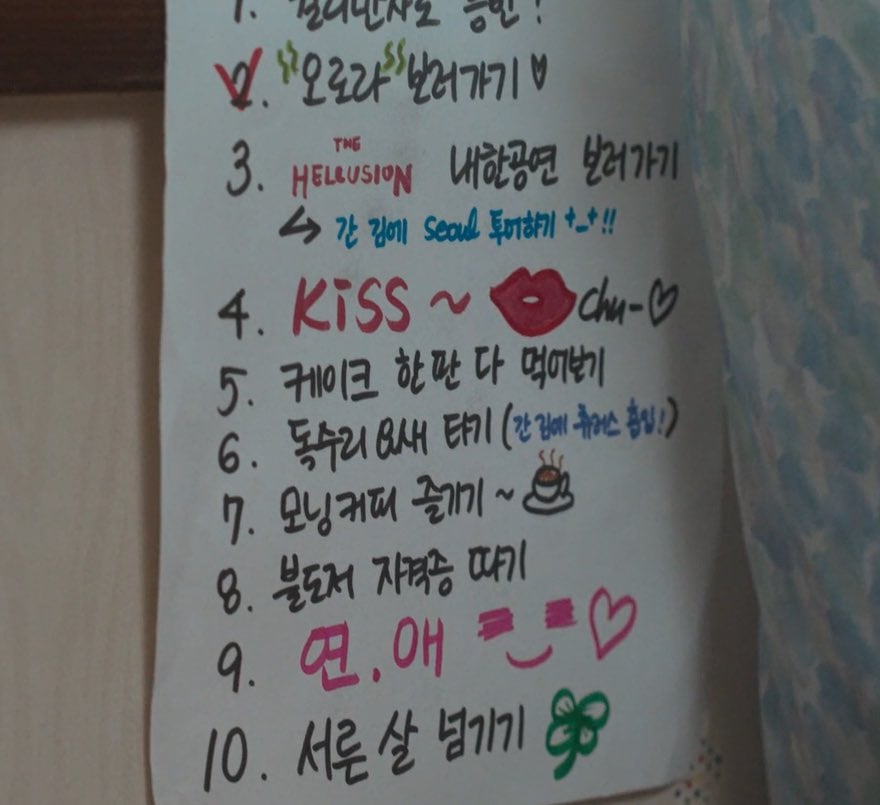 1. 걸리반자로 승진!
2. 오로라 보러가기♥
3. THE HELLUSION 내한공연 보러가기
↪ 간 김에 Seoul 투어하기 +_+!!
4. KiSS ~ Chu-♡
5. 케이크 한 판 다 먹어보기
6. 독수리 요새 타기 (간 김에 츄러스 흡입!)
7. 모닝커피 즐기기~
8. 불도저 자격증 따기
9. 연.애 =‿= ♡
10. 서른 살 넘기기